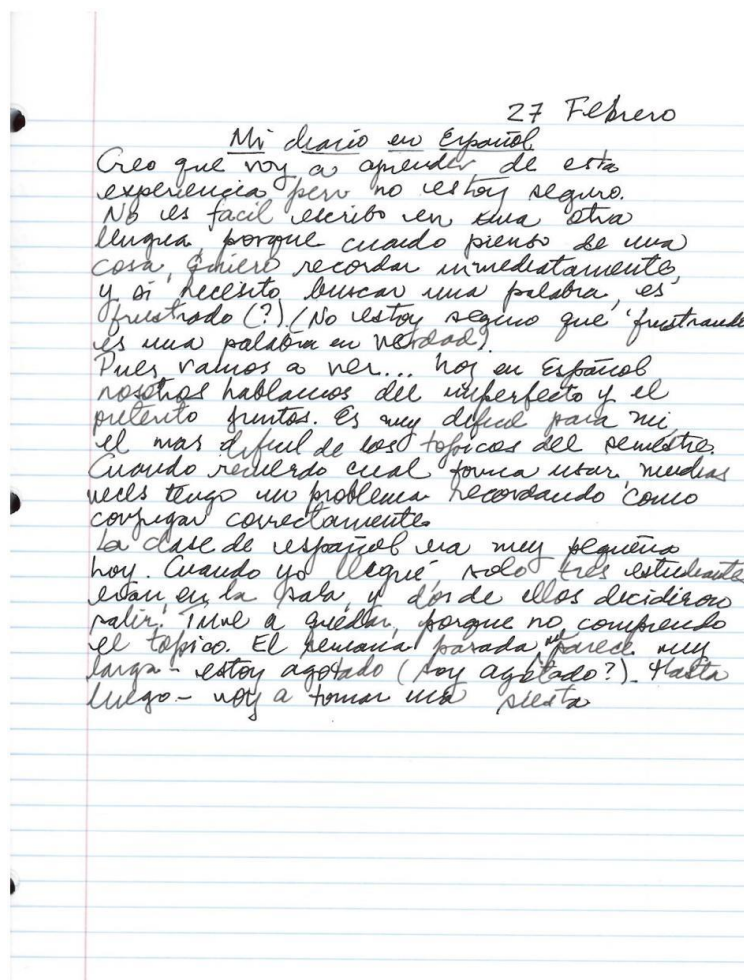 27 Febrero
Mi diario en Español
Creo que voy a aprender de esta
experiencia pero no estoy seguro.
No es facil escribo en una otra
lengua, porque cuando pienso de una
cosa, quiero recordar inmediatamente,
y si necesito buscar una palabra, es
frustrado (?) (No estoy seguro que 'frustrando
es una palabra en verdad).
Pues, vamos a ver... hoy en Español
nosotros hablamos del imperfecto y el
preterito juntos. Es muy dificil para mi,
el mas dificil de los topicos del semestre.
Cuando recuerdo cual forma usar, muchas
veces tengo un problema recordando como
conjugar correctamente.
La clase de español era muy pequeña
hoy. Cuando yo llegué solo tres estudiantes
eran en la sala, y dos de ellos decidieron
salir! Tuve a quedar, porque no comprendo
el topico. El semana pasada, parece muy
larga - estoy agotado (soy agotado?). Hasta
luego - voy a tomar una siesta